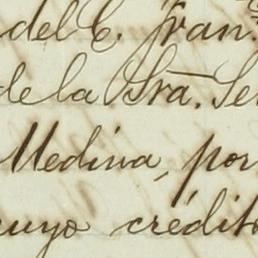 del C. Fran.
de la Sra. Se
Medina, por
cuyo crédito